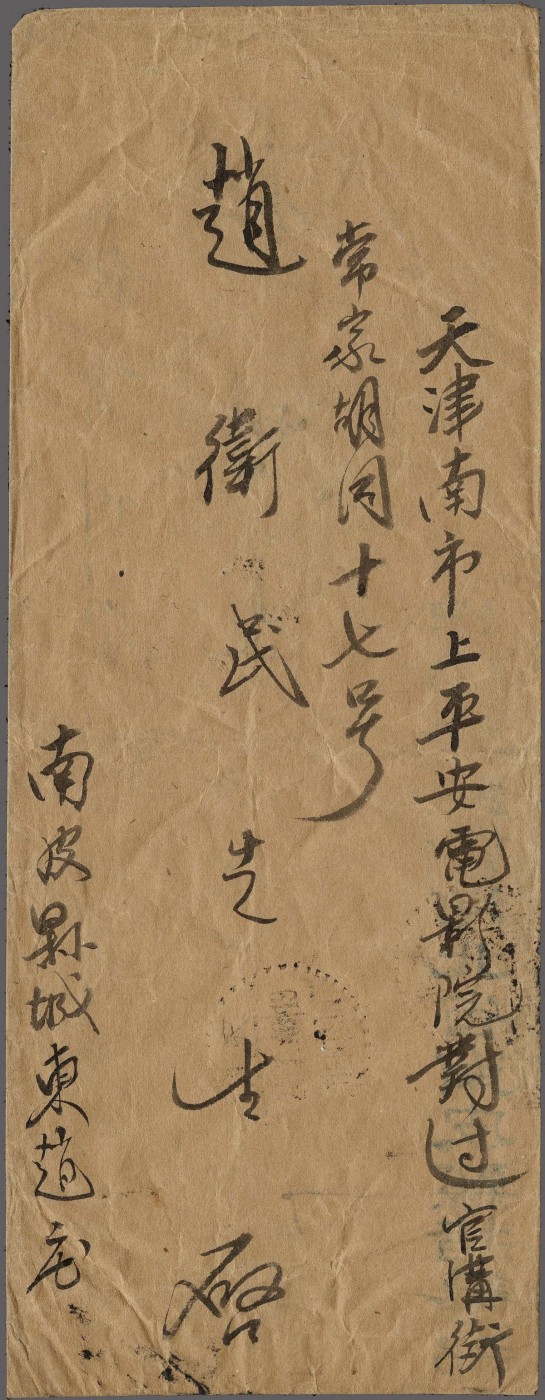 天津南市上平安電影院對过官溝街
常家胡同十七号
趙衛民先生啓
南皮縣城東趙庄